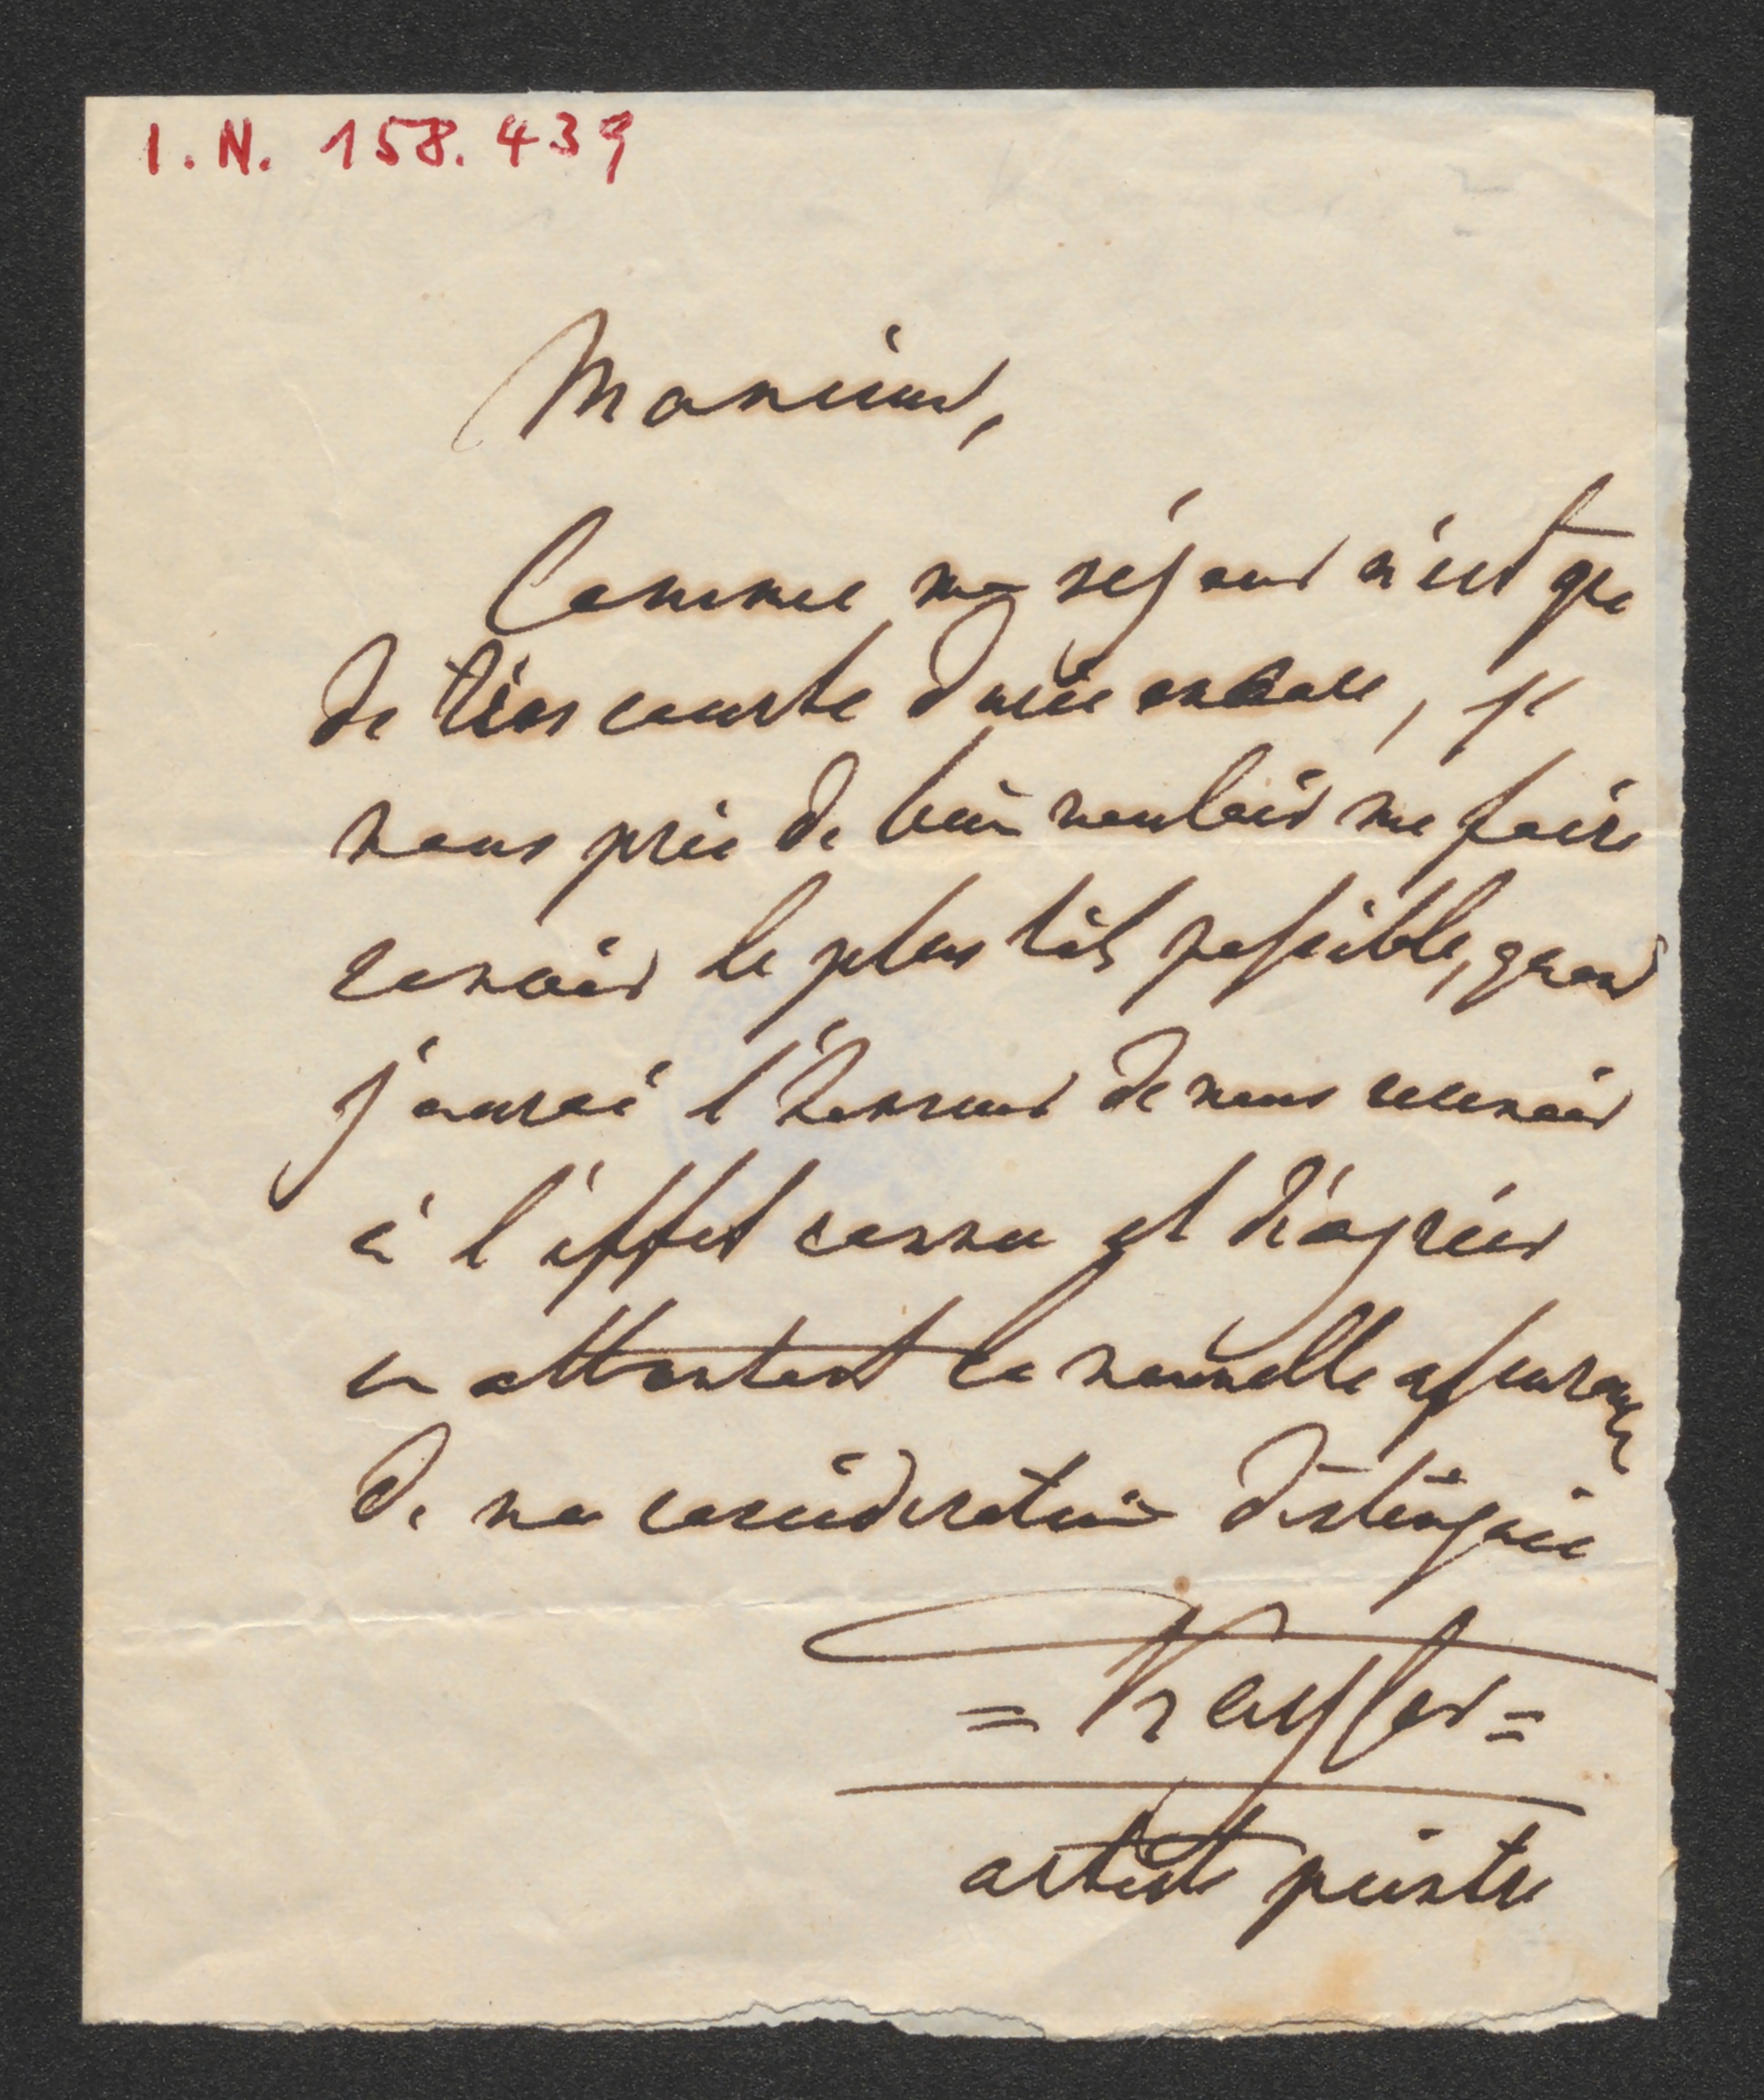 I.N. 158.439
Monsieur,
Comme mo séjour n'est que
de très courte durée encore, je
vous prie de bien vouloir me faire
savoir le plus tôt possible, quand
j'aurai l'honneur de vous recevoir
à l'effet connu et d'agréer
en attendant la nouvelle assurance
de ma consideration distinguée
= =
artiste peintre